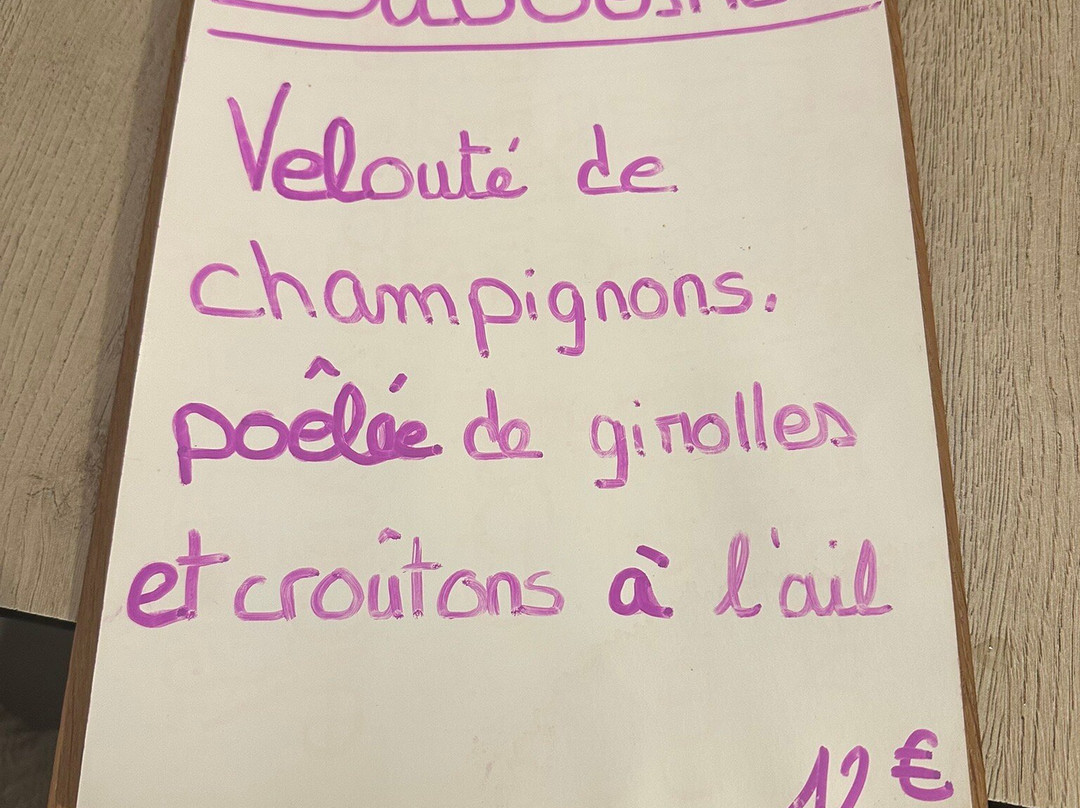 Velouté de
champignons.
poêlée de girolles
et croûtons à l'ail
12 €